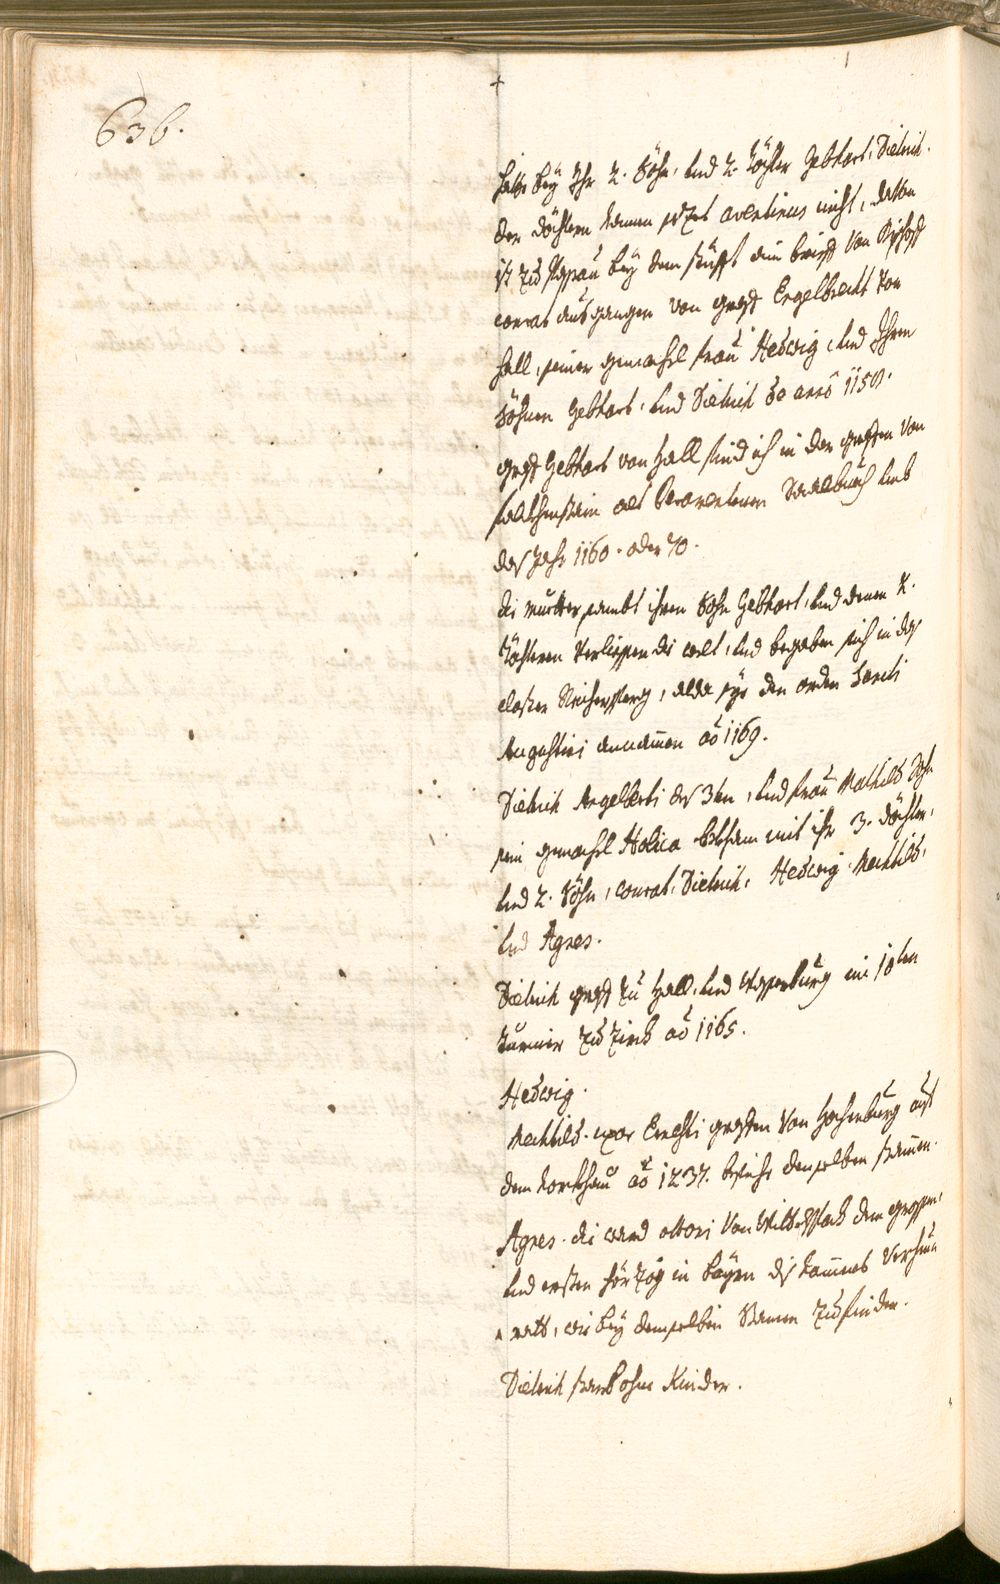 636.
hatte bey Ihr 2. Söhn, und 2. Töchter Gebhart, Dietrich.
der döchtern namen sezet aventinus nicht, davon
ist zu Passau bey dem stüfft ein brieff von Bischoff
conrat ausgangen von graff Engelbrecht von
Hall, seiner gemachl frau Hedwig, und Ihren
Söhnen Gebhart, und Dietrich de anno 1158.
graff Gebhart von Hall find ich in der graffen von
falkhenstain alt Saalbuch umb
das Jahr 1160. oder 70.
die mutter sambt ihren Sohn Gebhart, und denen 2.
Töchtern verliessen die welt, und begaben sich in das
closter Reichersperg, alda sye den orden Sancti
Augustini annamen ao 1169.
Dietrich Angelberti des 3ten, und frau Mathild Sohn
sein gemachl Holica bekham mit ihr 3. döchter,
und 2. Söhn, conrat, Dietrich, Hedwig, Mechtild,
und Agnes.
Dietrich graff zu Hall, und Wasserburg im 10ten
Turnier zu Zirch ao 1165.
Hedwig.
Mechtild. uxor graffen von Hochenburg auf
dem ao 1237. besuche denselben stammen.
Agnes. die ward ottoni von Wittelspach dem grossen,
und ersten Hörzog in bayrn dis stammes verheu
rath, wie bey demselben Stamen zu finden.
Dietrich starb ohne Kinder.